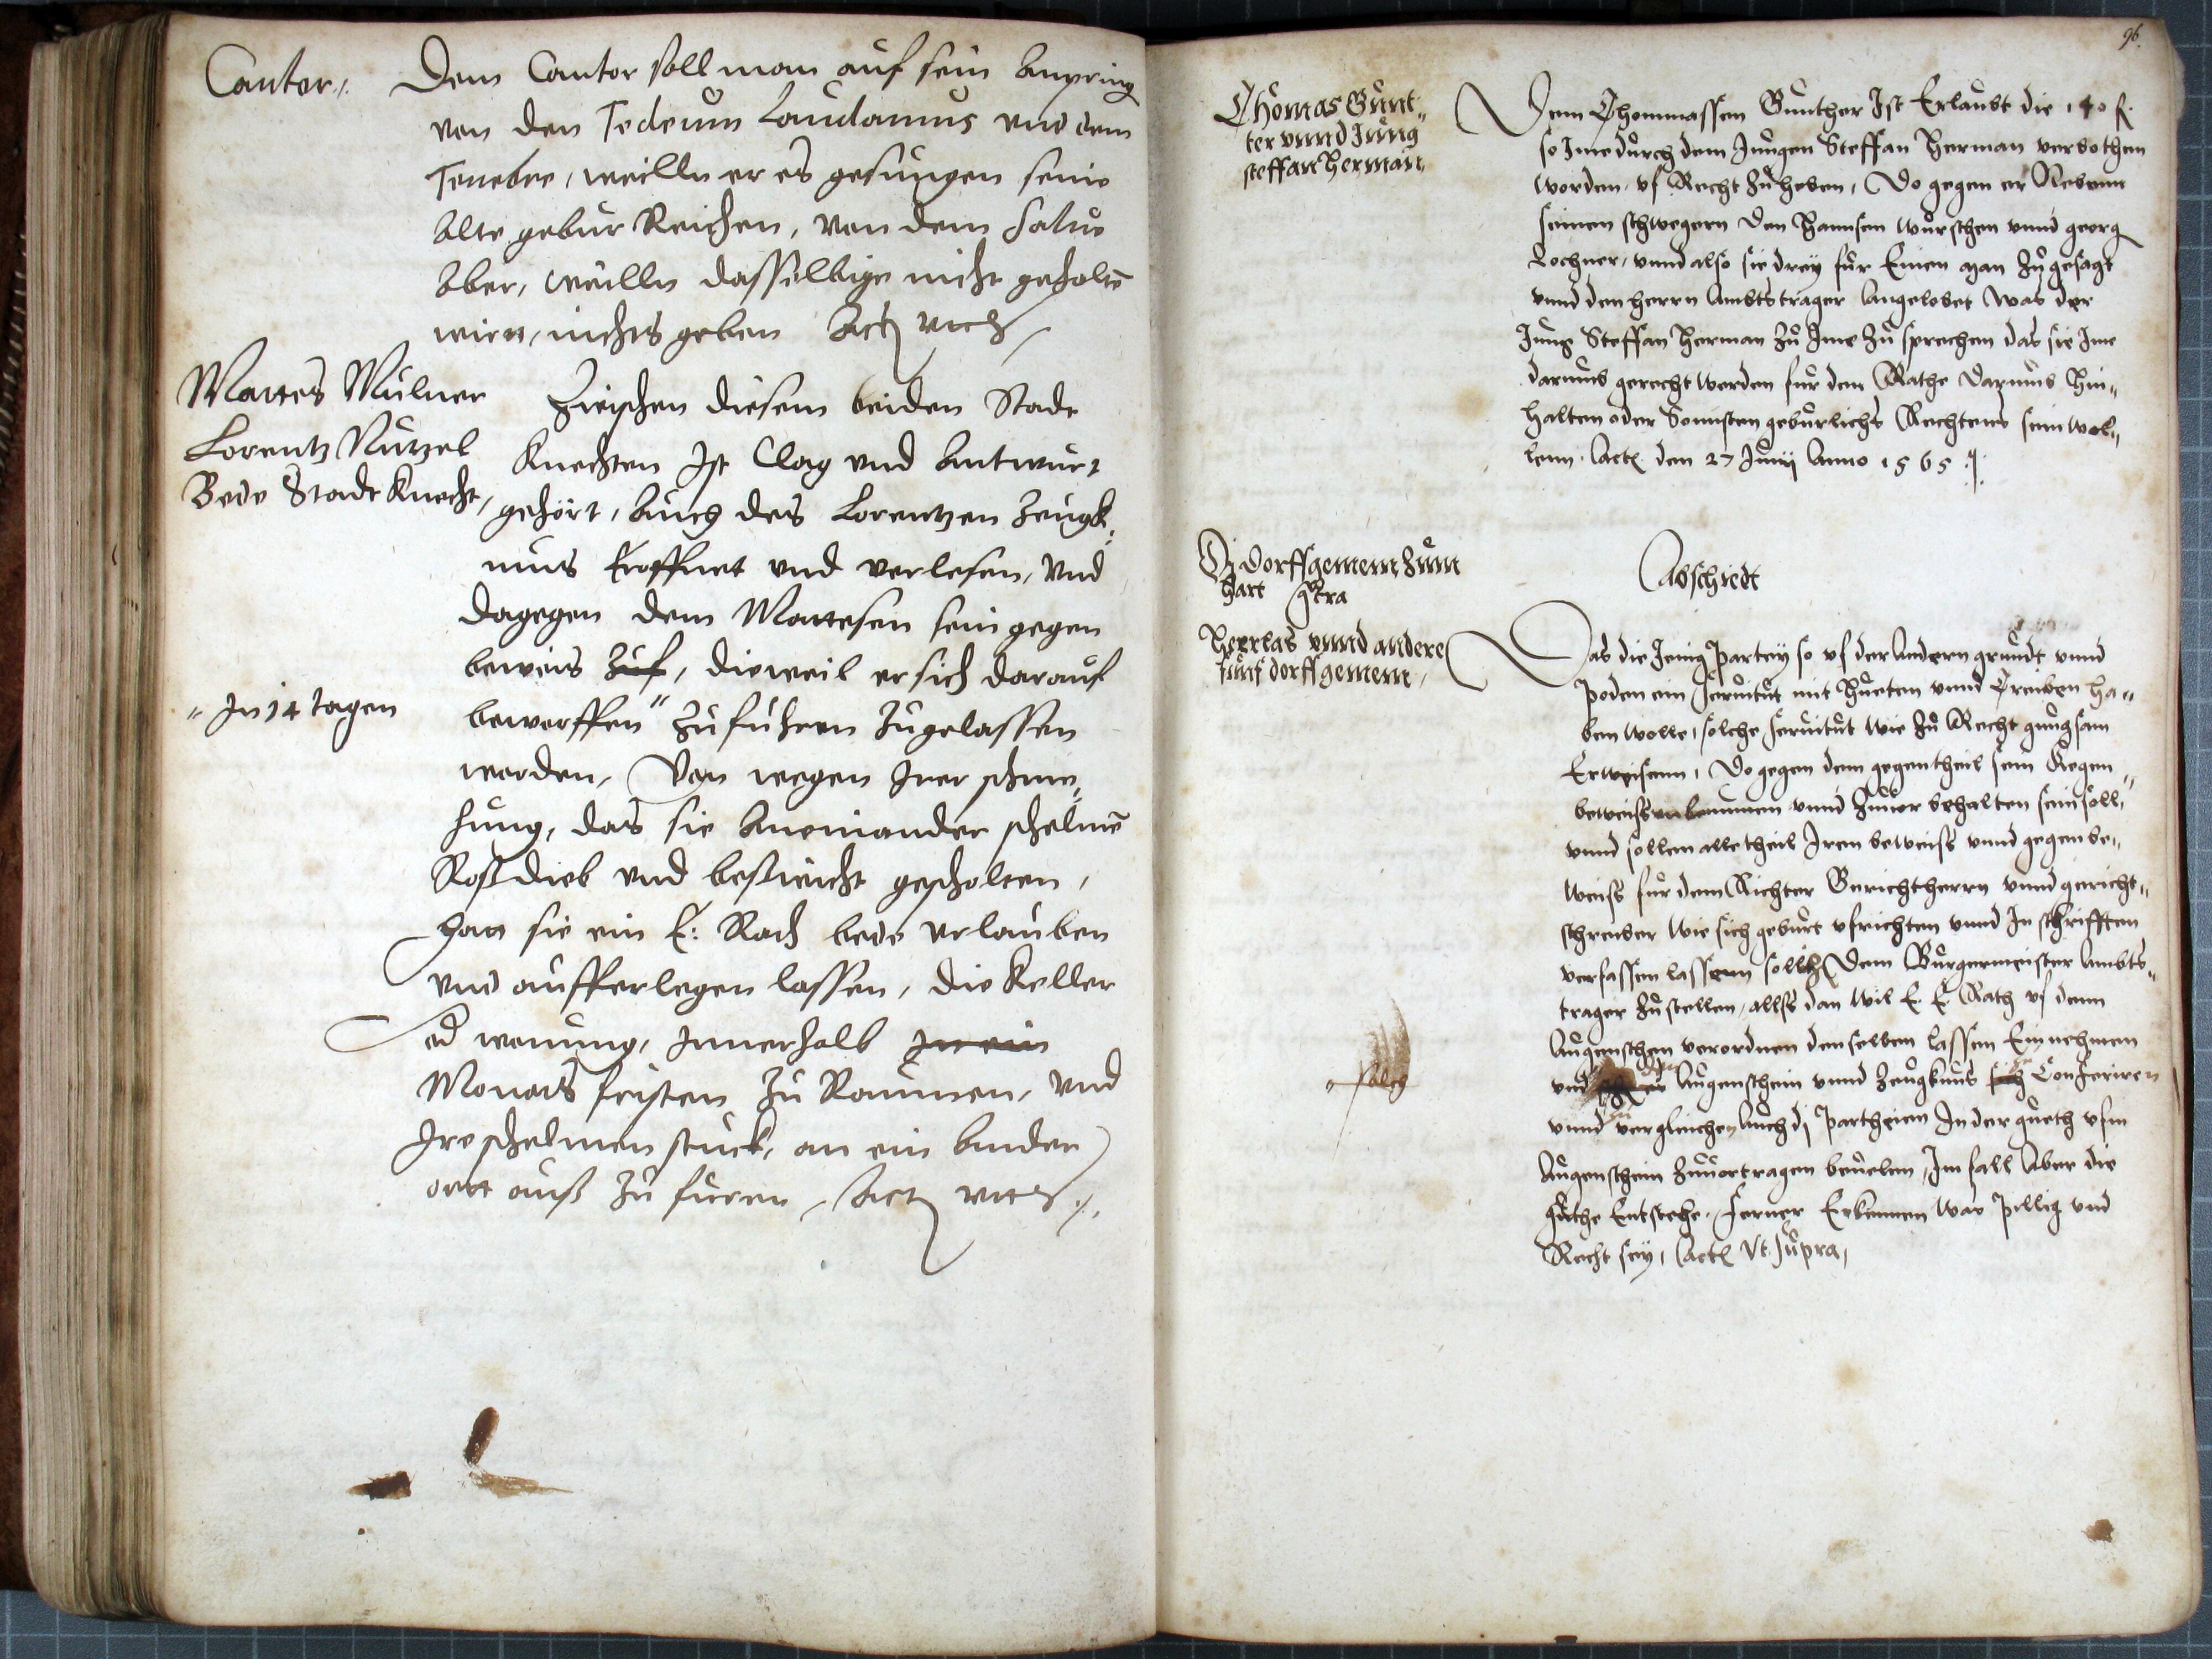 Cantor
Dem Cantor soll man auf sein anpring
von den Tedeum Laudamus vnd dem
Tenebre, weilln er es gesungen seine
alte gebur Reichen, von dem Salue
aber, weilln dasselbige nicht gehaltē
wirt, nichts geben Act
Mattes Mülner
Lorentz Nützel
Bede Stadt Knecht,
Zwischen diesem beiden Stadt
Knechten Ist Clag vnd Antwurt
gehört, auch des Lorentzen Zeugk
nus Eroffnet vnd verlesen, vnd
dagegen dem Mattesen sein gegen
beweis Zuf, dieweil er sich darauf
In 14 tagen
beworffen Zufuhren Zugelassen
worden, Von wegen Irer schme
hung, das sie aneinander schelmē
Roßdieb vnd gescholten,
hatt sie ein E: Rath bede vrlauben
vnd aufferlegen lassen, die Keller
wonung, Innerhalb In ein
Monats fristen Zu Raumen, vnd
Ire schelmen stuck, an ein ander
ortt auß Zu furen, Act
96.
Thomas Günt
ter vnnd Jung
steffan Herman
Dem Thommassen Günther Ist Erlaubt die 140 fl.
so Ime durch dem Jungen Steffan Herman verbothen
worden, vf Recht Zu heben, Do gegen er Nebenn
seinen schwegern den Hannsen Würschen vnnd georg
Lochner, vnnd also sie drey für Einen man Zugesagt
vnnd den herrn Ambtstrager Angelobet was der
Jung Steffan Herman Zu Ime Zu sprechen das sie Ime
darumb gerecht werden für dem Rathe darumb
halten oder Sonnsten gebürlichs Rechtens sein wol
lenn. Act den 27 Junij Anno 1565
Di Dorffgemein Zum
hart gtra
vnnd andere
fünf dorffgemein,
Abschiedt
Das die Jenig Partey so vf der Andern grundt vnnd
Poden ein Seruitut mit Hueten vnnd Treiben ha
ben wolle, solche Seruitut wie Zu Recht gnugsam
Erweisenn, Do gegen dem gegentheil sein Gegen
beweis vnbenummen vnnd Zuuor behalten sein soll,
vnnd sollen alle theil Iren beweiß vnnd gegenbe
weiß für dem Richter Gerichtherrn vnnd gericht
schreiber wie sich gebürt vfrichten vnnd In schrifften
verfassen lassenn solchs Dem Burgermeister Ambts
trager Zustellen, allß dan wil E. E. Rath vf denn
Augenschein verordnen denselben lassen Einnehmen
vnd Augenschein vnnd Zeugknus Conferiren
vnnd vergleichen auch di Partheien In der gueth vfm
Augenschein Zuuortragen beuelen, Im fall Aber die
güthe Entstehe, ferner Erkennen was Pillig vnd
Recht sey, Act Vt Supra,